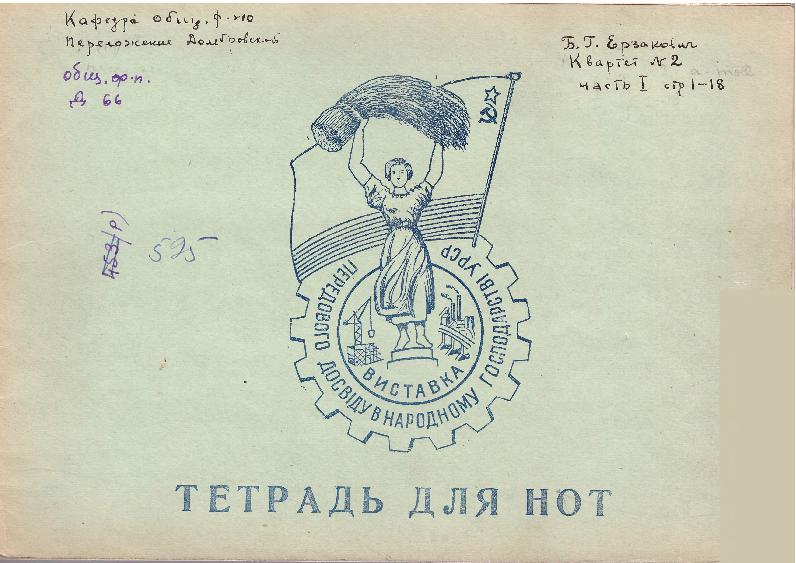 Кафедра общ. ф-но
Переложение Домбровской
Б. Г. Ерзакович
Квартет № 2
часть I стр 1-18
общ. ф-п.
Д 66
a-moll
453(р)
595
ПЕРЕДОВОГО ДОСВІДУ В НАРОДНОМУ ГОСПОДАРСТВІ УРСР
ВИСТАВКА
ТЕТРАДЬ ДЛЯ НОТ